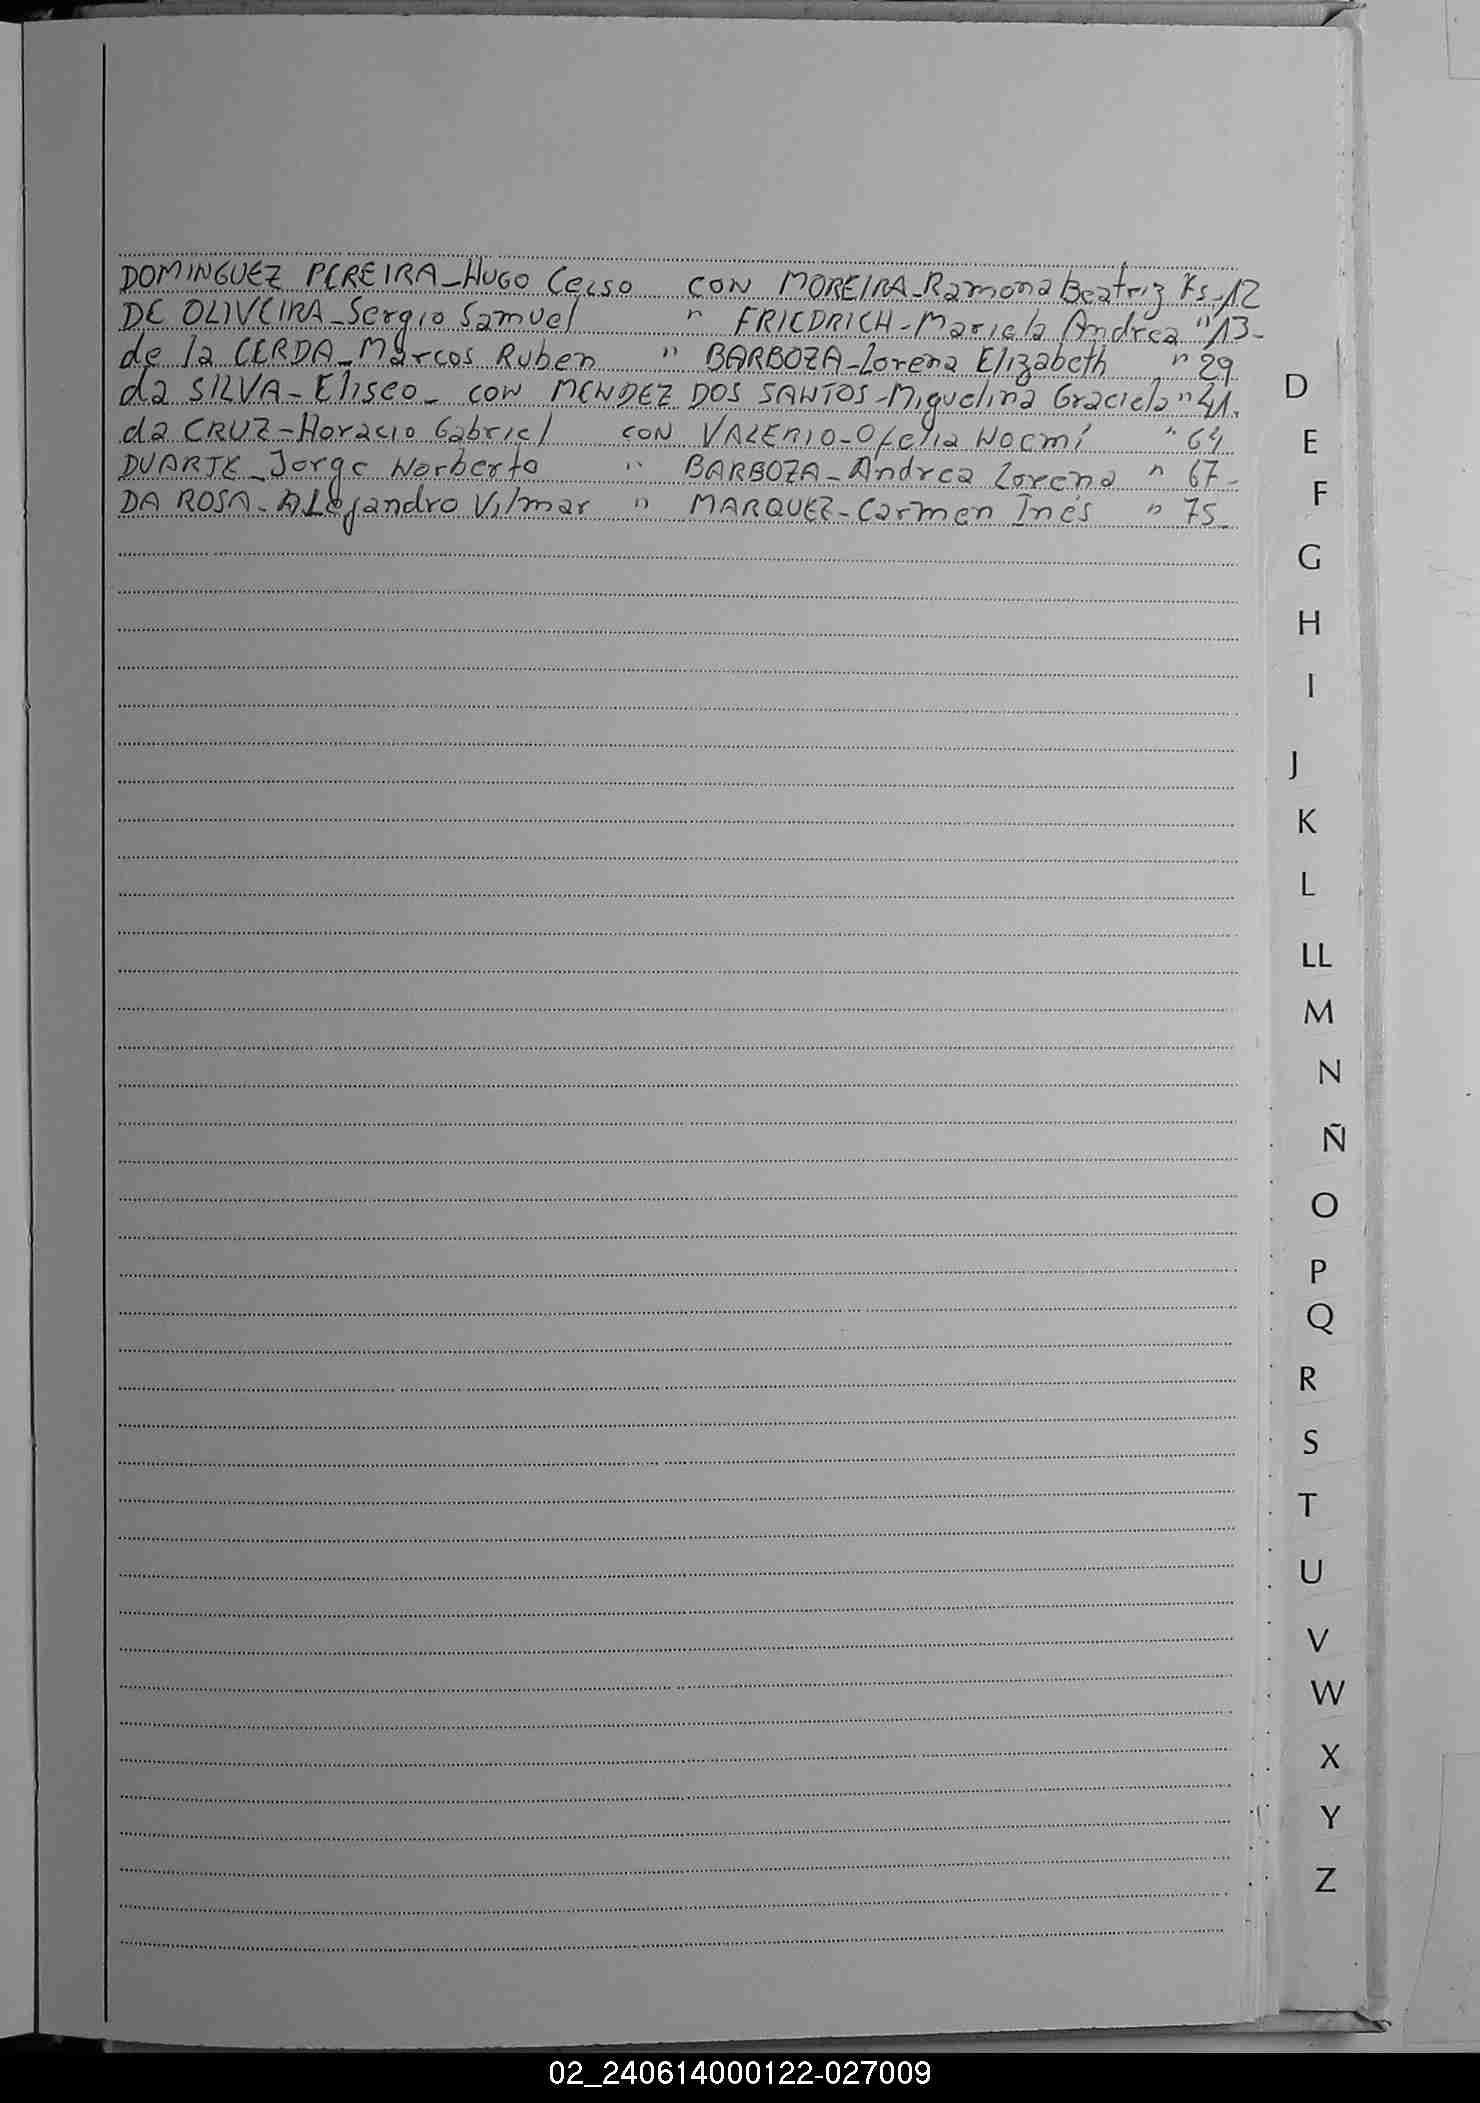 DOMINGUEZ PEREIRA_HUGO Celso CON MOREIRA_Ramona Beatriz Fs-12
DE OLIVEIRA_Sergio Samuel " FRIEDRICH-Mariela Andrea "13-
de la CERDA_Marcos Ruben " BARBOZA_Lorena Elizabeth " 29
da SILVA_Eliseo_ CON MENDEZ DOS SANTOS_Miguelina Graciela "41.
da CRUZ-Horacio Gabriel CON VALERIO_Ofelia Noemí " 64
DUARTE_Jorge Norberto " BARBOZA_Andrea Lorena " 67_
DA ROSA_ALejandro Vilmar " MARQUEZ_Carmen Inés " 75_
D
E
F
G
H
I
J
K
L
LL
M
N
Ñ
O
P
Q
R
S
T
U
V
W
X
Y
Z
02_240614000122-027009